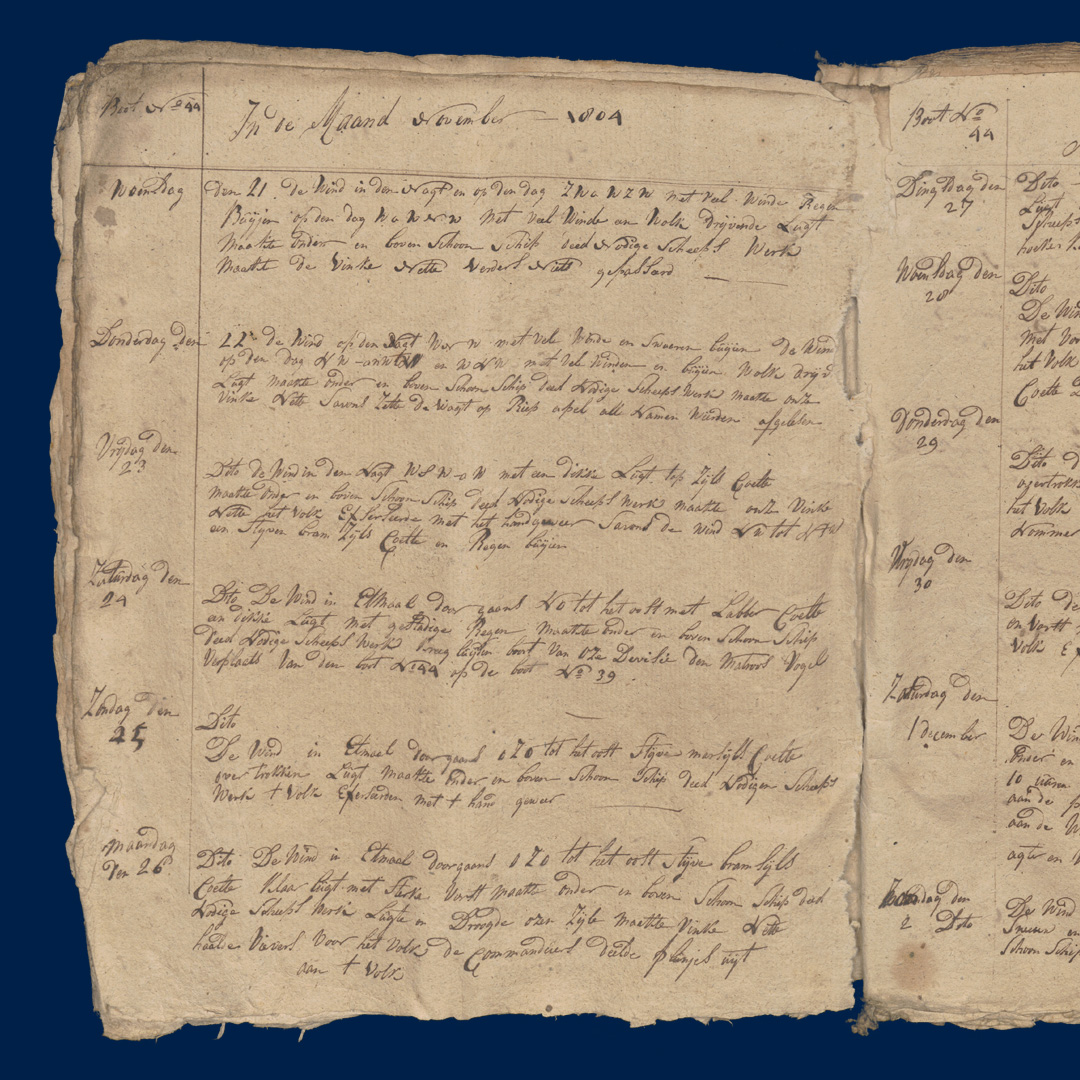 Boot No 44
In de Maand November 1804
Woensdag
den 21 de Wind in den Nagt en op den dag ZW a WZW met veel Winde Regen
Buijen op den dag W a WNW Met veel Winde en Wolk drijvende Lugt
Maakte onder en boven Schoon Schip deed Nodige Scheeps Werk
Maakte de Vinke Nette Verders Niets gepasseerd
Donderdag den
22 de Wind op den Nagt W met vele Winde en Swaeren buijen de Wind
op den dag NW en WNW met vele Winden en buijen Wolk drijv
Lugt maakte onder en boven Schoon Schip deed Nodige Scheeps Werk maakte onze
Vinke Nette Savons Zette de Wagt op Riep apel all Namen Wierden afgelesen
Vrijdag den
23
Dito de Wind in den Nagt met een dikke Lugt top Zijls Coelte
maakte onder en boven Schoon Schip deed Nodige Scheeps Werk maakte onze Vinke
Nette het Volk Exserseerde met het handgeweer Savons de wind No tot
een Styven bram Zijls Coelte en Regen buijen
Zaturdag den
24
Dito De Wind in Etmaal door gaans No tot het oost met Labber Coelte
een dikke Lugt met gestadige Regen Maakte onder en boven Schoon Schip
deed Nodige Scheeps Werk kreeg boot Van oze Devisie den Matroos Vogel
Verplaets Van den boot No 44 op de boot No 39
Zondag den
25
Dito
De Wind in Etmaal doorgaans OZO tot het oost Styve marszijls Coelte
over trokken Lugt Maakte onder en boven Schoon Schip deed Nodigen Scheeps
Werk t Volk Exserseerden met t hand geweer
Maandag
den 26
Dito De Wind in Etmaal doorgaans OZO tot het oost Styve bram Zijls
Coelte Klaar lugt met Sterke Vorst maakte onder en boven Schoon Schip deed
Nodige Scheeps Werk Lugte en Droogde onze Zijle maakte Vinke Nette
haalde Vivers Voor het Volk de Commandeurs deelde plunjes uijt
aan t Volk
Boot No
44
Dingsdag den
27
Dito
Lugt
Woensdag den
28
Dito
De Win
met Vo
het Volk
Coelte
Donderdag den
29
Dito d
overtrokk
het Volk
Nommer
Vrijdag den
30
Dito de
en Vorst
Volk
Zaturdag den
1 december
De Win
en
10 uuren
aan de
aan de W
agter en
Zondag den
2 Dito
De Wind
Sneuw en
Schoon Schip